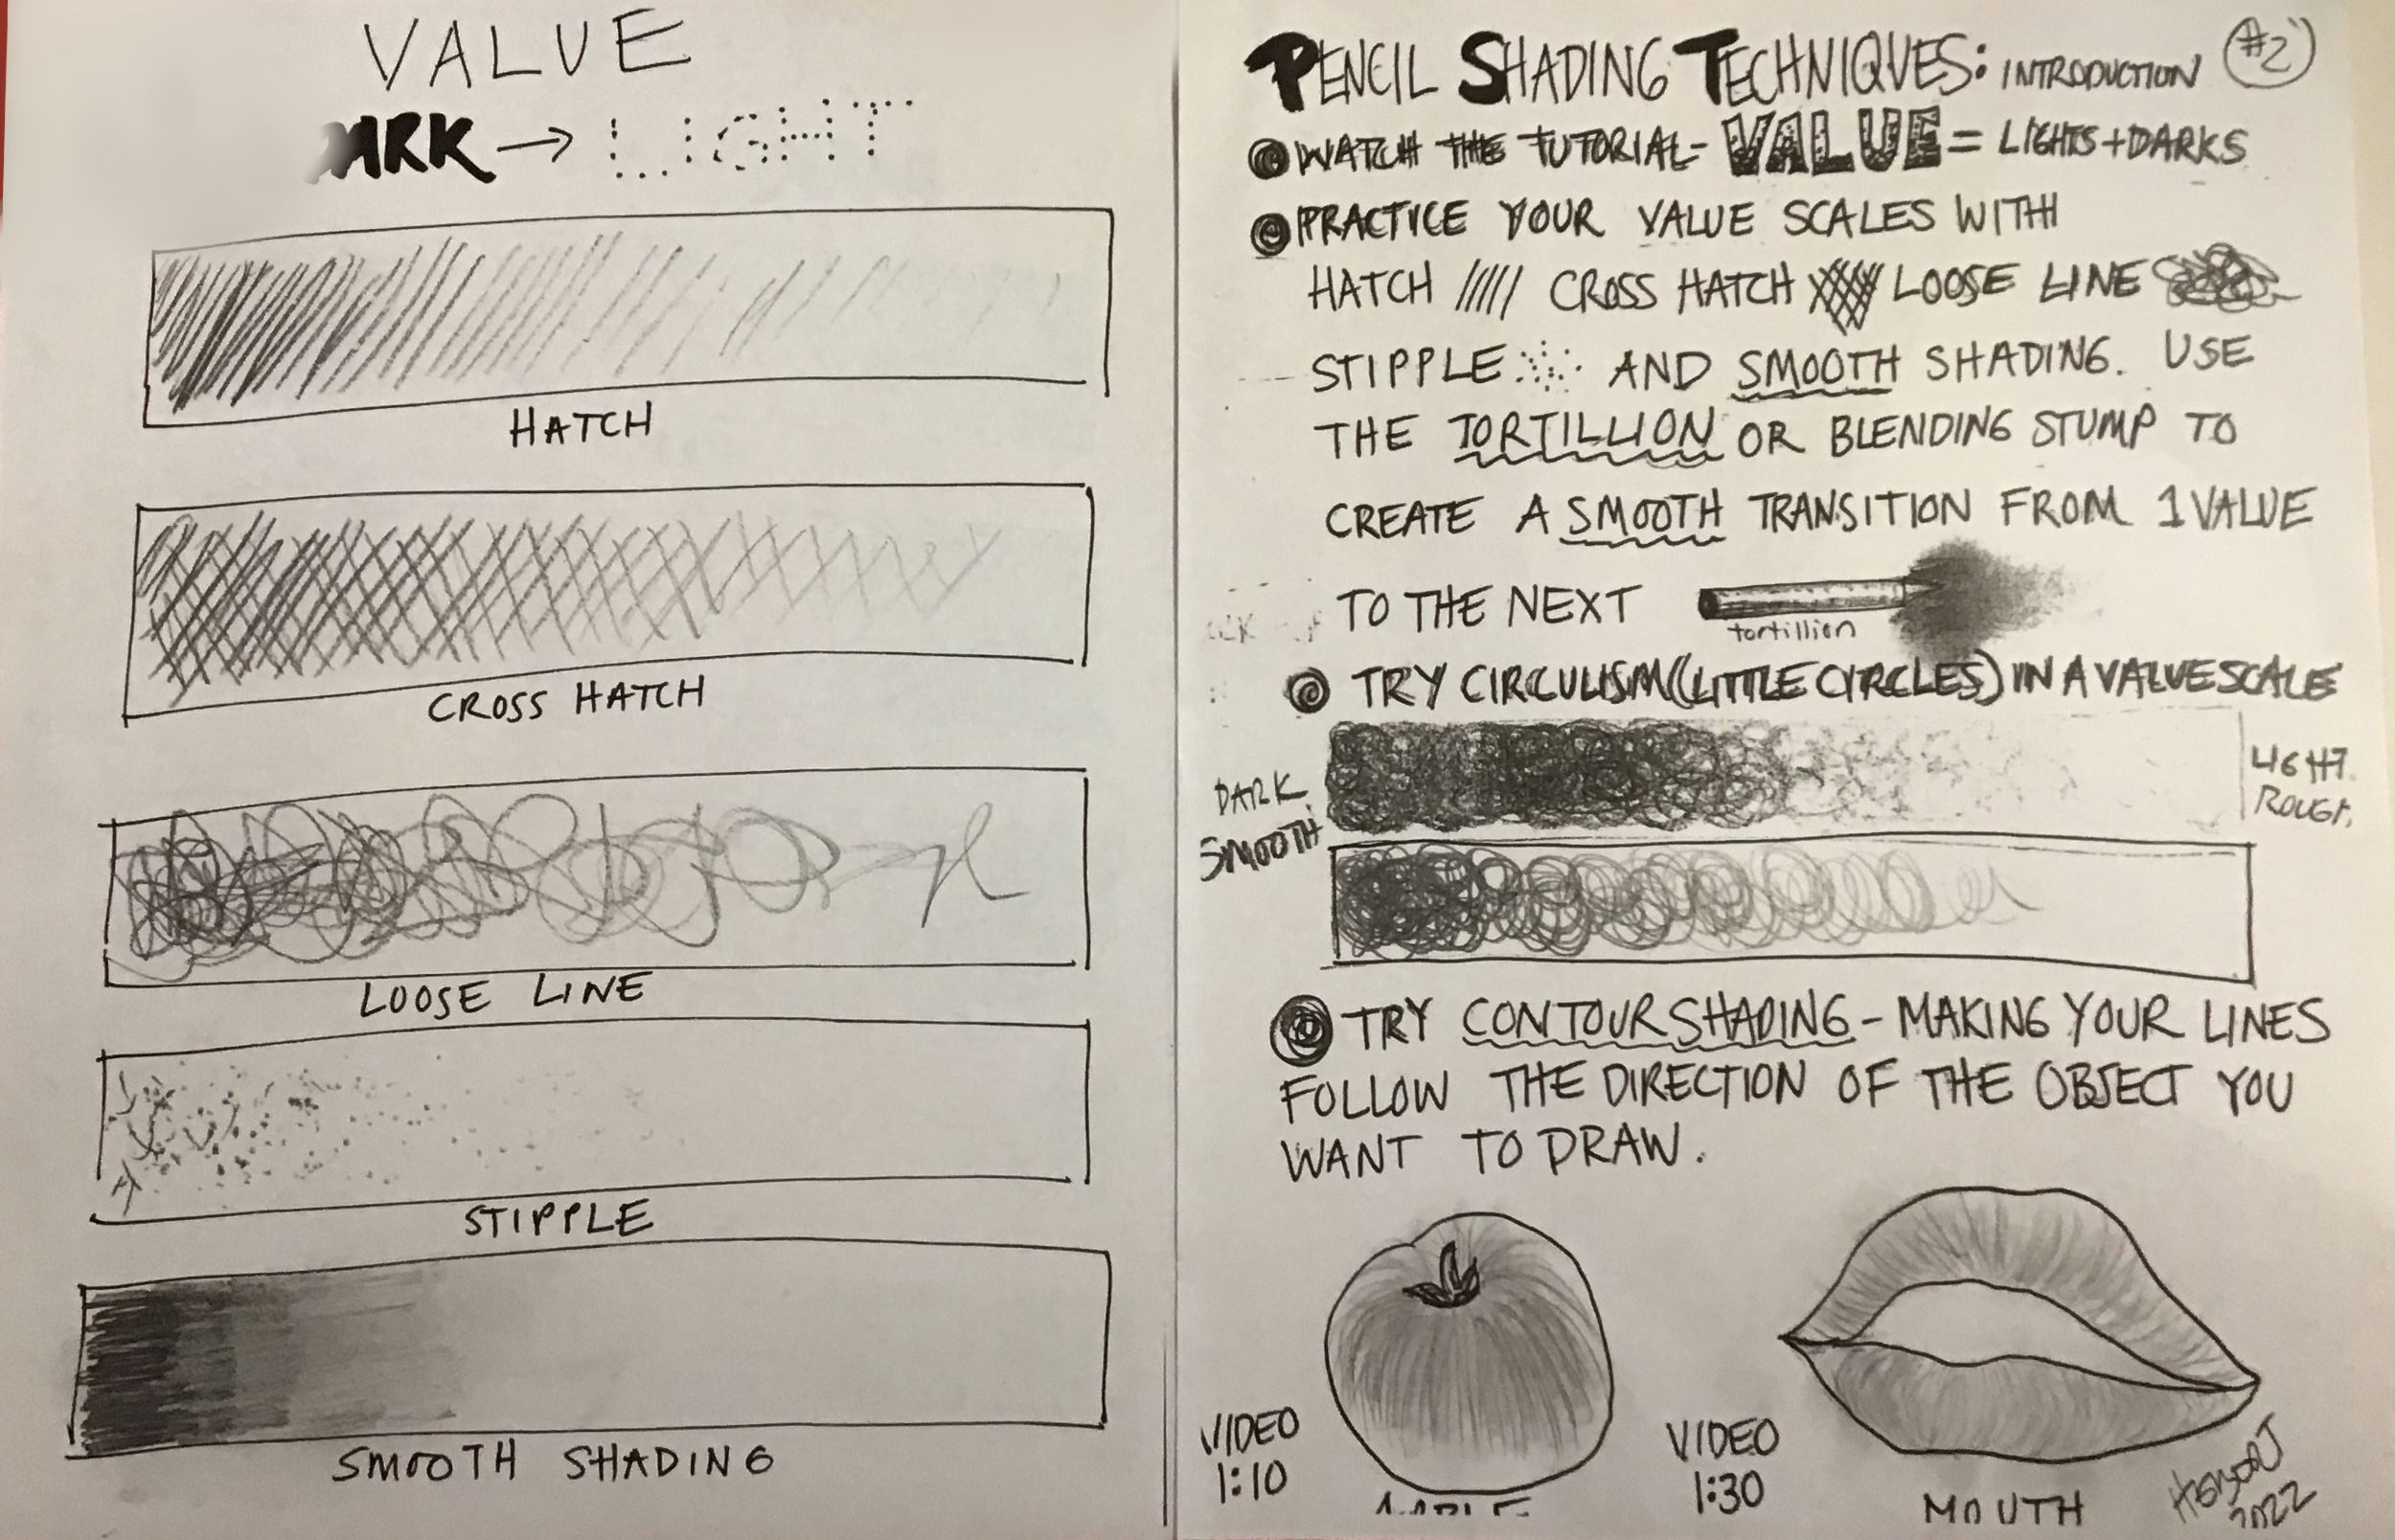 VALUE
ARK → LIGHT
HATCH
CROSS HATCH
LOOSE LINE
STIPPLE
SMOOTH SHADING
PENCIL SHADING TECHNIQUES: INTRODUCTION #2
WATCH THE TUTORIAL- VALUE = LIGHTS+DARKS
PRACTICE YOUR VALUE SCALES WITH
HATCH CROSS HATCH LOOSE LINE
STIPPLE AND SMOOTH SHADING. USE
THE TORTILLION OR BLENDING STUMP TO
CREATE A SMOOTH TRANSITION FROM 1 VALUE
TO THE NEXT
tortillion
TRY CIRCULISM (LITTLE CIRCLES) IN A VALUE SCALE
DARK
SMOOTH
LIGHT
TRY CONTOUR SHADING - MAKING YOUR LINES
FOLLOW THE DIRECTION OF THE OBJECT YOU
WANT TO DRAW.
VIDEO
1:10
VIDEO
1:30
MOUTH
2022